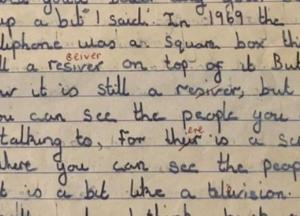 up a bit" I said. In 1969 the
liphone was an square box thi
ll a resiver on top of it But
eiver
w it is still a resivir, but
ou can see the people you
talking to, For their is a sc
ere
here you can see the peop
t is a bit like a tilivision.